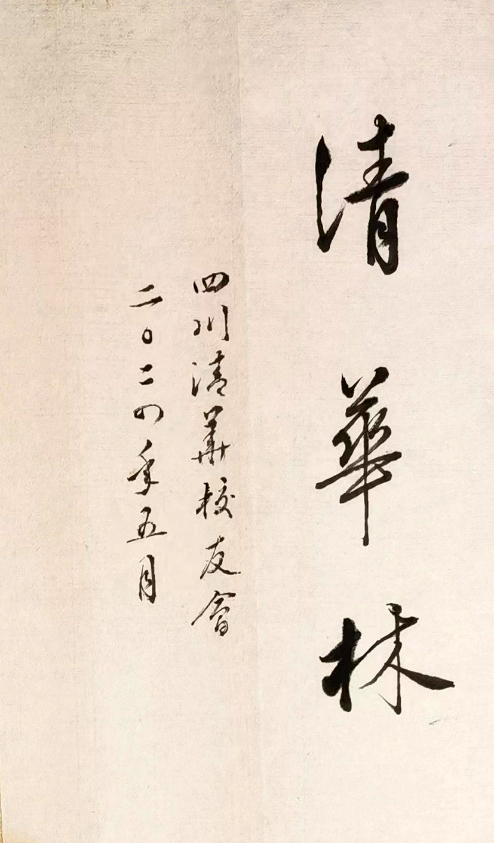 清華林
四川清華校友會
二〇二四年五月